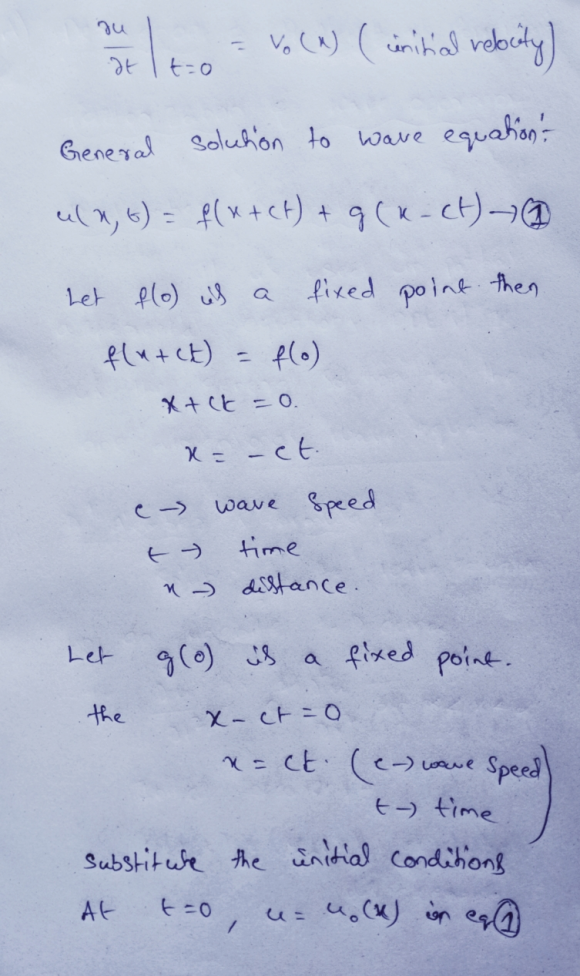 ∂u/∂t | t=0 = v₀(x) (initial velocity)
General solution to wave equation:-
u(x,t) = f(x+ct) + g(x-ct) → ①
Let f(0) is a fixed point then
f(x+ct) = f(0)
x+ct = 0.
x = -ct.
c → wave speed
t → time
x → distance.
Let g(0) is a fixed point.
the x-ct = 0
x = ct. (c → wave speed
t → time)
Substitute the initial conditions
At t=0, u = u₀(x) in eq ①